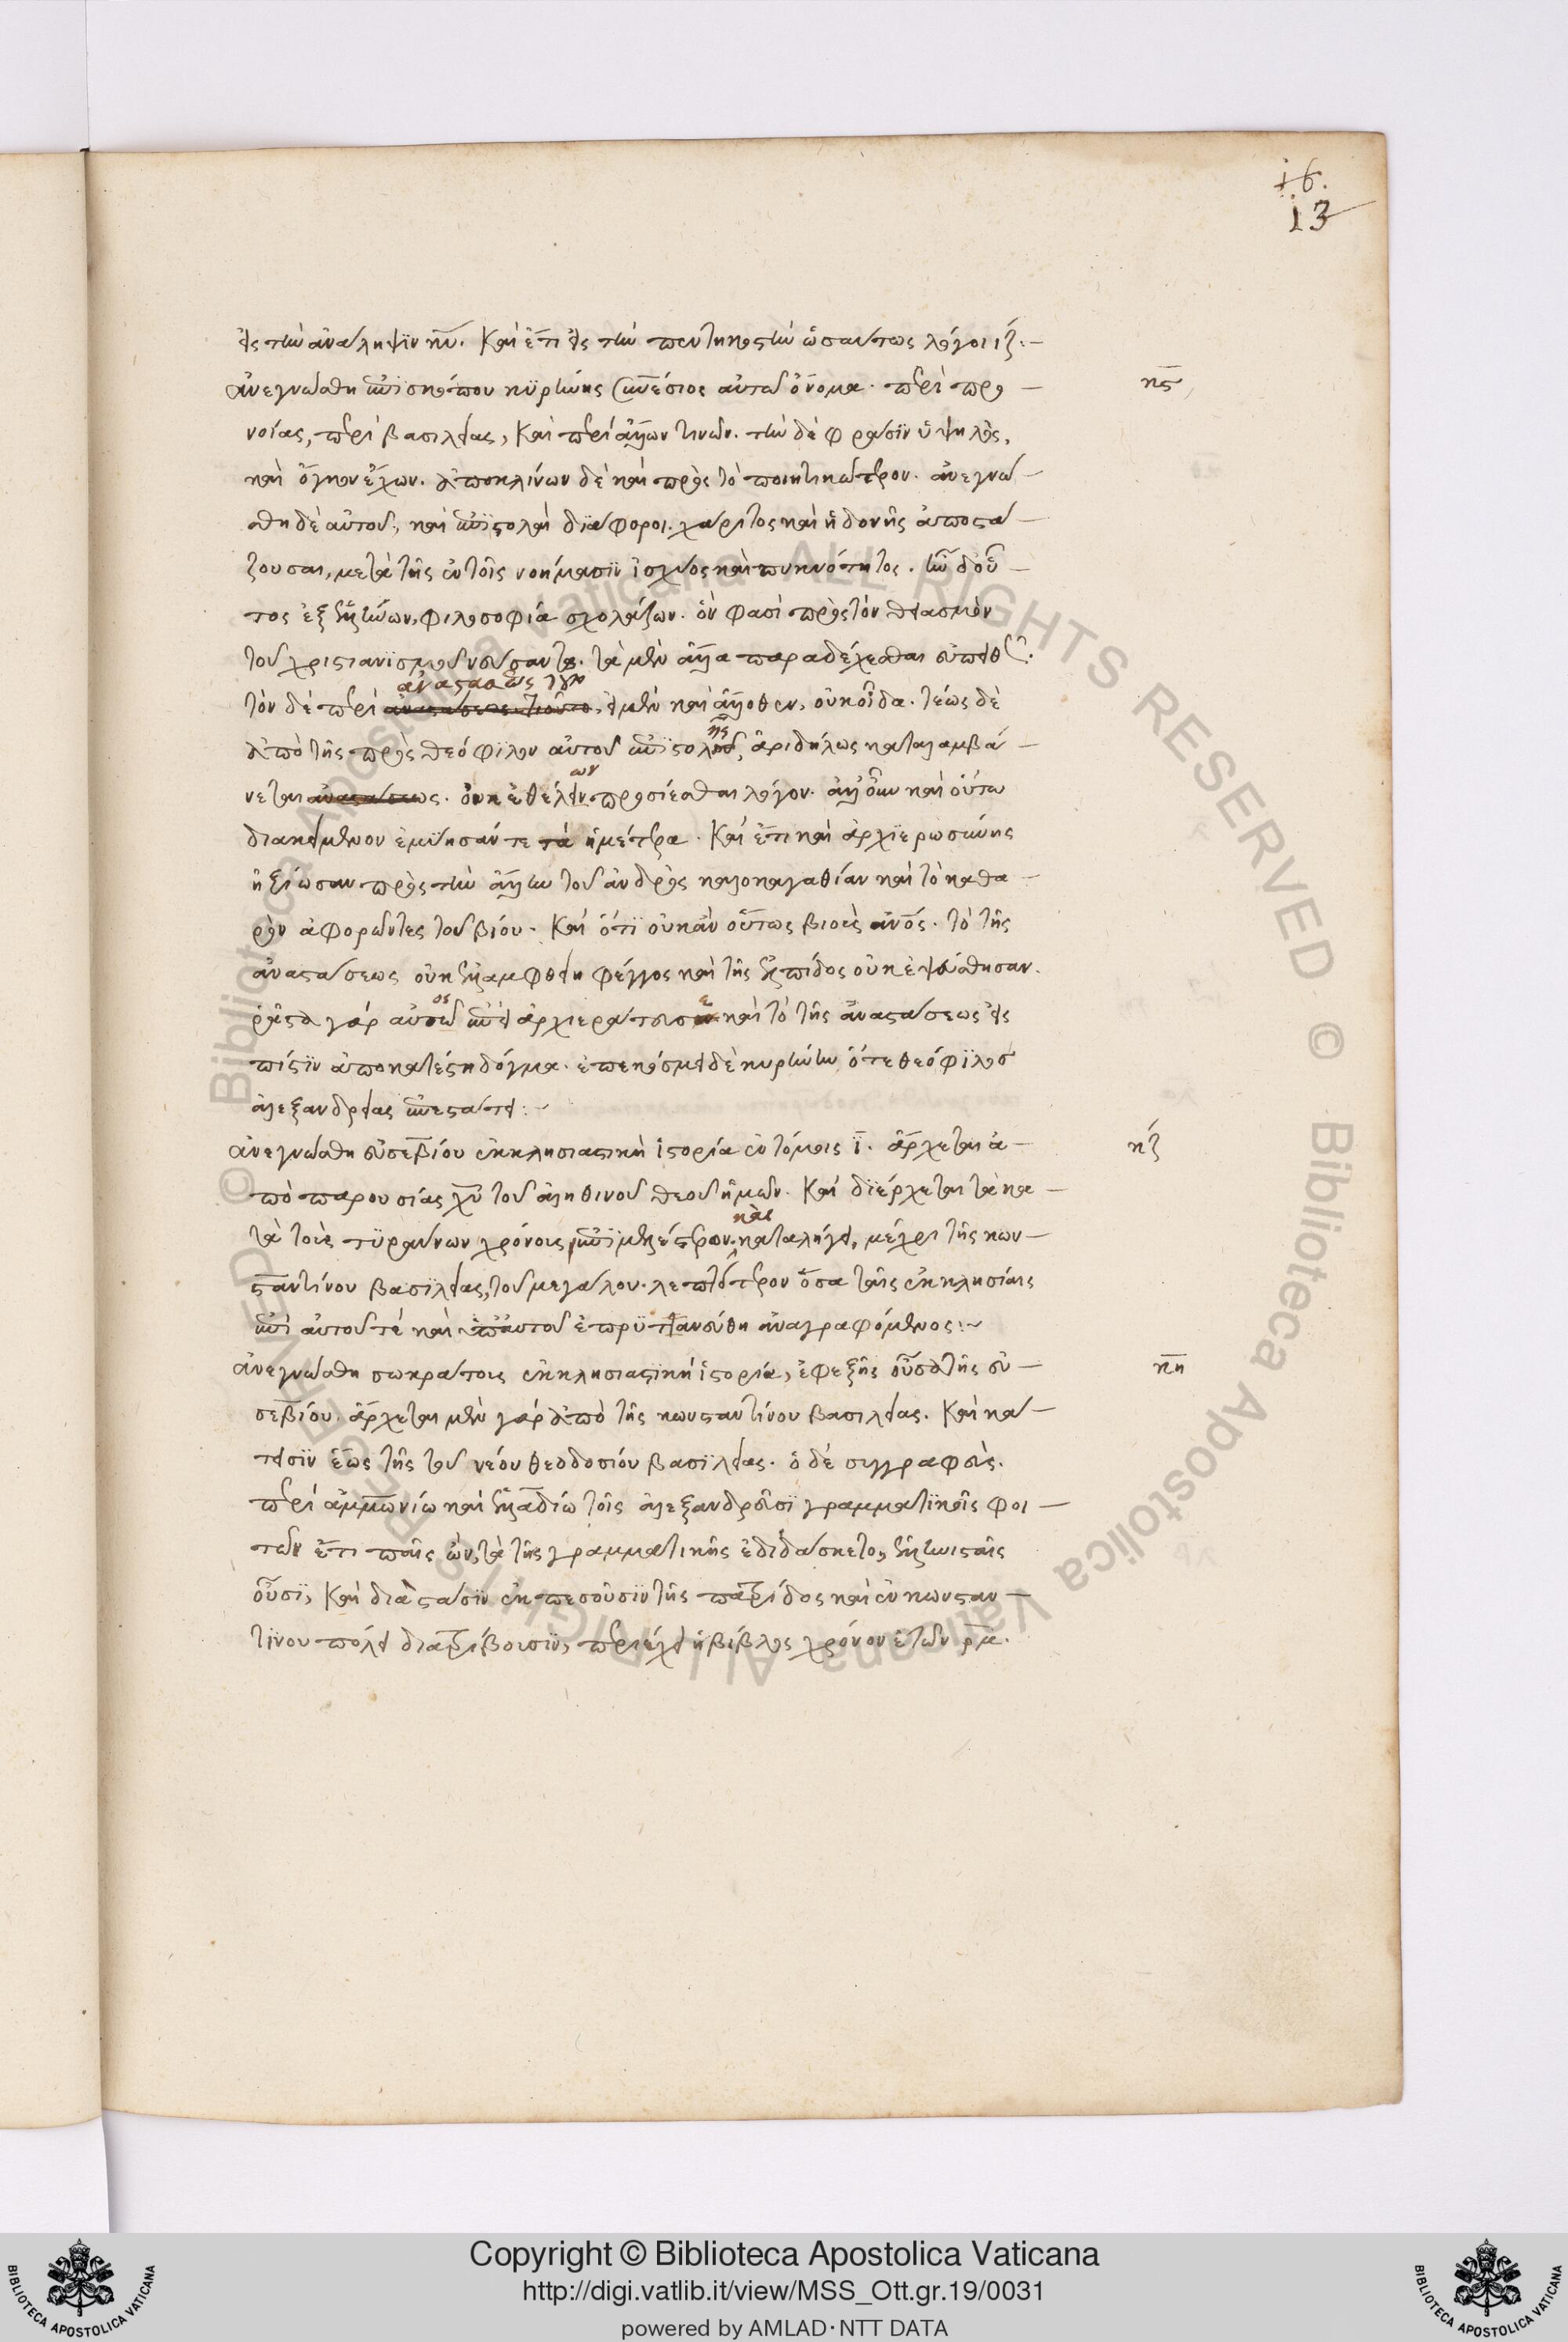 16.
13
εἰς τὴν ἀνάληψϊν κυ. Καὶ ἔτι εἰς τὴν πεντηκοστὴν ὡσαύτως λόγοι ιζ:–
ἀνεγνώσθη ἐπϊσκόπου κϋρήνης συνέσιος αὐτῶ ὄνομα. περὶ προ – κϛ
νοίας, περὶ βασιλείας, καὶ περὶ ἄλλων τινῶν. τὴν δὲ φράσϊν ὑψηλὸς,
καὶ ὄγκον ἔχων. ἀποκλίνων δὲ καὶ πρὸς τὸ ποιητικώτερον. ἀνεγνώ –
σθη δὲ αὐτοῦ, καὶ ἐπϊστολαὶ δϊάφοροι. χάριτος καὶ ἡδονῆς ἀποστά –
ζουσαι, μετὰ τῆς ἐν τοῖς νοήμασϊν ἰσχύος καὶ πυκνότητος. ἦν δ' οὗ –
τος ἐξ ἑλλήνων, φιλοσοφία σχολάζων. ὅν φασὶ πρὸς τὸν θειασμὸν
τοῦ χριστιανϊσμοῦ νεύσαντα. τὰ μὲν ἄλλα παραδέχεσθαι εὐπειθ.
ἀναστάσεως λγο
τὸν δὲ περὶ εἰ μὲν καὶ ἄλλοθεν, οὐκ οἶδα. τέως δὲ
ἀπὸ τῆς πρὸς θεόφϊλον αὐτοῦ ἐπϊστολῆς, ἀριδήλως καταλαμβά –
νεται ἀναστάσεως. οὐκ ἐθέλων προσίεσθαι λόγον. ἀλλ' οὖν καὶ οὕτω
διακείμενον ἐμύησάν τε τὰ ἡμέτερα. Καὶ ἔτι καὶ ἀρχϊερωσύνης
ἠξίωσαν πρὸς τὴν ἄλλην τοῦ ἀνδρὸς καλοκαγαθίαν καὶ τὸ καθα –
ρὸν ἀφορῶντες τοῦ βίου. Καὶ ὅτϊ οὐκ ἂν οὕτως βιοὺς ἀνος. τὸ τῆς
ἀναστάσεως οὐκ ἐλλαμφθείη φέγγος καὶ τῆς ἐλπίδος οὐκ ἐψεύσθησαν.
ῥᾶστα γὰρ αὐτῶ ἐπεὶ ἀρχιεράτευσε καὶ τὸ τῆς ἀναστάσεως εἰς
πίστϊν ἀποκατέστη δόγμα. ἐπεκόσμει δὲ κυρήνην ὅτε θεόφϊλος
ἀλεξανδρείας ἐπεστάτει:~
ἀνεγνώσθη εὐσεβίου ἐκκλησιαστικὴ ἱστορία ἐν τόμοις ϊ. ἄρχεται ἀ – κζ
πὸ παρουσίας χυ τοῦ ἀληθινοῦ θεοῦ ἡμῶν. Καὶ δϊέρχεται τὰ κα –
τὰ τοὺς τϋράννων χρόνους, ἐπϊμελέστερον. καὶ καταλήγει, μέχρι τῆς κων –
σταντίνου βασϊλείας, τοῦ μεγάλου. λεπτότερον ὅσα ταῖς ἐκκλησίαις
ἐπὶ αὐτοῦ τὲ καὶ ὑπ' αὐτοῦ ἐπρϋτανεύθη ἀναγραφόμενος:~
ἀνεγνώσθη σωκράτους ἐκκλησιαστικὴ ἱστορία, ἐφεξῆς οὖσα τῆς εὐ – κη
σεβίου. ἄρχεται μὲν γὰρ ἀπὸ τῆς κωνσταντίνου βασιλείας. Καὶ κά –
τεισϊν ἕως τῆς τοῦ νέου θεοδοσίου βασϊλείας. ὁ δὲ συγγραφεὺς.
περὶ ἀμμωνίω καὶ ἑλλαδίω τοῖς ἀλεξανδρεῦσϊ γραμματϊκοῖς φοι –
τῶν ἔτι παῖς ὢν, τὰ τῆς γραμματικῆς ἐδιδάσκετο, ἑλληνισταῖς
οὖσϊ, Καὶ διὰ στάσϊν ἐκπεσοῦσϊν τῆς πατρίδος καὶ ἐν κωνσταν –
τϊνου πόλει διατρίβουσϊν, περιέχει ἡ βίβλος χρόνον ἐτῶν ρμ.
© Biblioteca Apostolica Vaticana ALL RIGHTS RESERVED
Copyright © Biblioteca Apostolica Vaticana
http://digi.vatlib.it/view/MSS_Ott.gr.19/0031
powered by AMLAD·NTT DATA
BIBLIOTECA APOSTOLICA VATICANA
BIBLIOTECA APOSTOLICA VATICANA